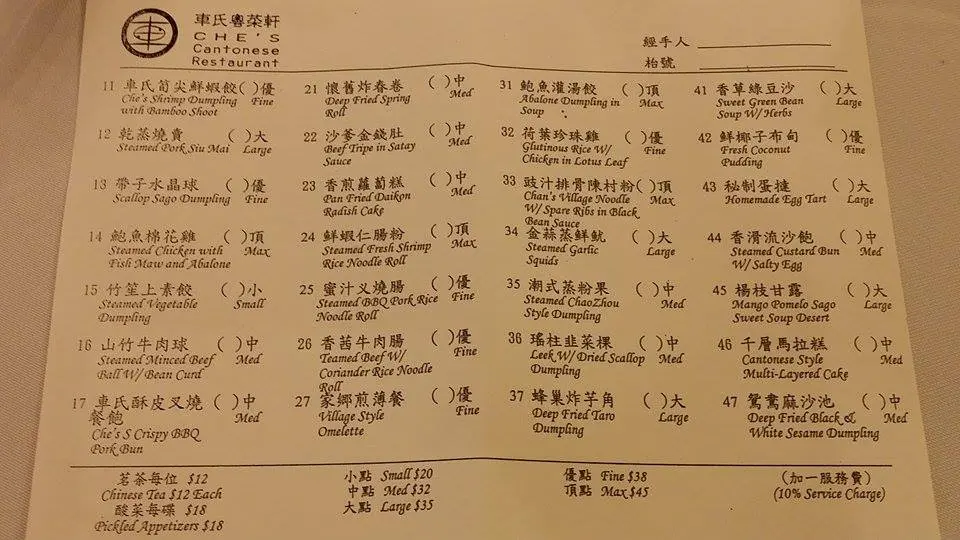 車氏粵菜軒
CHE'S
Cantonese
Restaurant
經手人
枱號
11 車氏筍尖鮮蝦餃( )優
Che's Shrimp Dumpling Fine
with Bamboo Shoot
12 乾蒸燒賣 ( )大
Steamed Pork Siu Mai Large
13 帶子水晶球 ( )優
Scallop Sago Dumpling Fine
14 鮑魚棉花雞 ( )頂
Steamed Chicken with Max
Fish Maw and Abalone
15 竹笙上素餃 ( )小
Steamed Vegetable Small
Dumpling
16 山竹牛肉球 ( )中
Steamed Minced Beef Med
Ball W/ Bean Curd
17 車氏酥皮叉燒 ( )中
餐飽 Med
Che's S Crispy BBQ
Pork Bun
21 懷舊炸春卷 ( )中
Deep Fried Spring Med
Roll
22 沙爹金錢肚 ( )中
Beef Tripe in Satay Med
Sauce
23 香煎蘿蔔糕 ( )中
Pan Fried Daikon Med
Radish Cake
24 鮮蝦仁腸粉 ( )頂
Steamed Fresh Shrimp Max
Rice Noodle Roll
25 蜜汁义燒腸 ( )優
Steamed BBQ Pork Rice Fine
Noodle Roll
26 香茜牛肉腸 ( )優
Teamed Beef W/ Fine
Coriander Rice Noodle
Roll
27 家鄉煎薄餐 ( )優
Village Style Fine
Omelette
31 鮑魚灌湯餃 ( )頂
Abalone Dumpling in Max
Soup
32 荷葉珍珠雞 ( )優
Glutinous Rice W/ Fine
Chicken in Lotus Leaf
33 豉汁排骨陳村粉( )頂
Chan's Village Noodle Max
W/ Spare Ribs in Black
Bean Sauce
34 金蒜蒸鮮魷 ( )大
Steamed Garlic Large
Squids
35 潮式蒸粉果 ( )中
Steamed ChaoZhou Med
Style Dumpling
36 瑤柱韭菜粿 ( )中
Leek W/ Dried Scallop Med
Dumpling
37 蜂巢炸芋角 ( )大
Deep Fried Taro Large
Dumpling
41 香草綠豆沙 ( )大
Sweet Green Bean Large
Soup W/ Herbs
42 鮮椰子布甸 ( )優
Fresh Coconut Fine
Pudding
43 秘制蛋撻 ( )大
Homemade Egg Tart Large
44 香滑流沙飽 ( )中
Steamed Custard Bun Med
W/ Salty Egg
45 楊枝甘露 ( )大
Mango Pomelo Sago Large
Sweet Soup Desert
46 千層馬拉糕 ( )中
Cantonese Style Med
Multi-Layered Cake
47 鴛鴦麻沙池 ( )中
Deep Fried Black & Med
White Sesame Dumpling
茗茶每位 $12
Chinese Tea $12 Each
酸菜每碟 $18
Pickled Appetizers $18
小點 Small $20
中點 Med $32
大點 Large $35
優點 Fine $38
頂點 Max $45
(加一服務費)
(10% Service Charge)